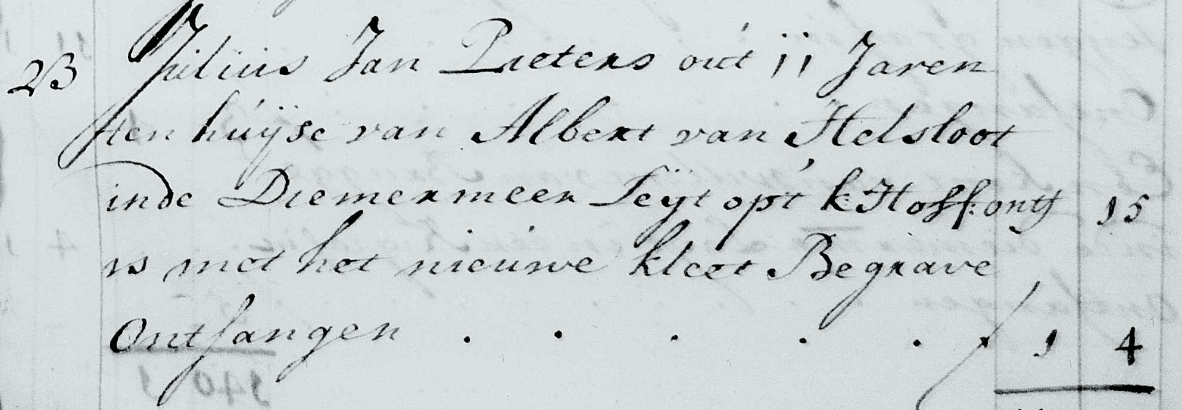 23 Julius Jan Pieters out 11 Jaren
ten huÿse van Albert van Helsloot
inde Diemermeer Leÿt opt k:Hoff: ontf 15
is met het nieuwe kleet Begrave
Ontfangen . . . . . f 1 4